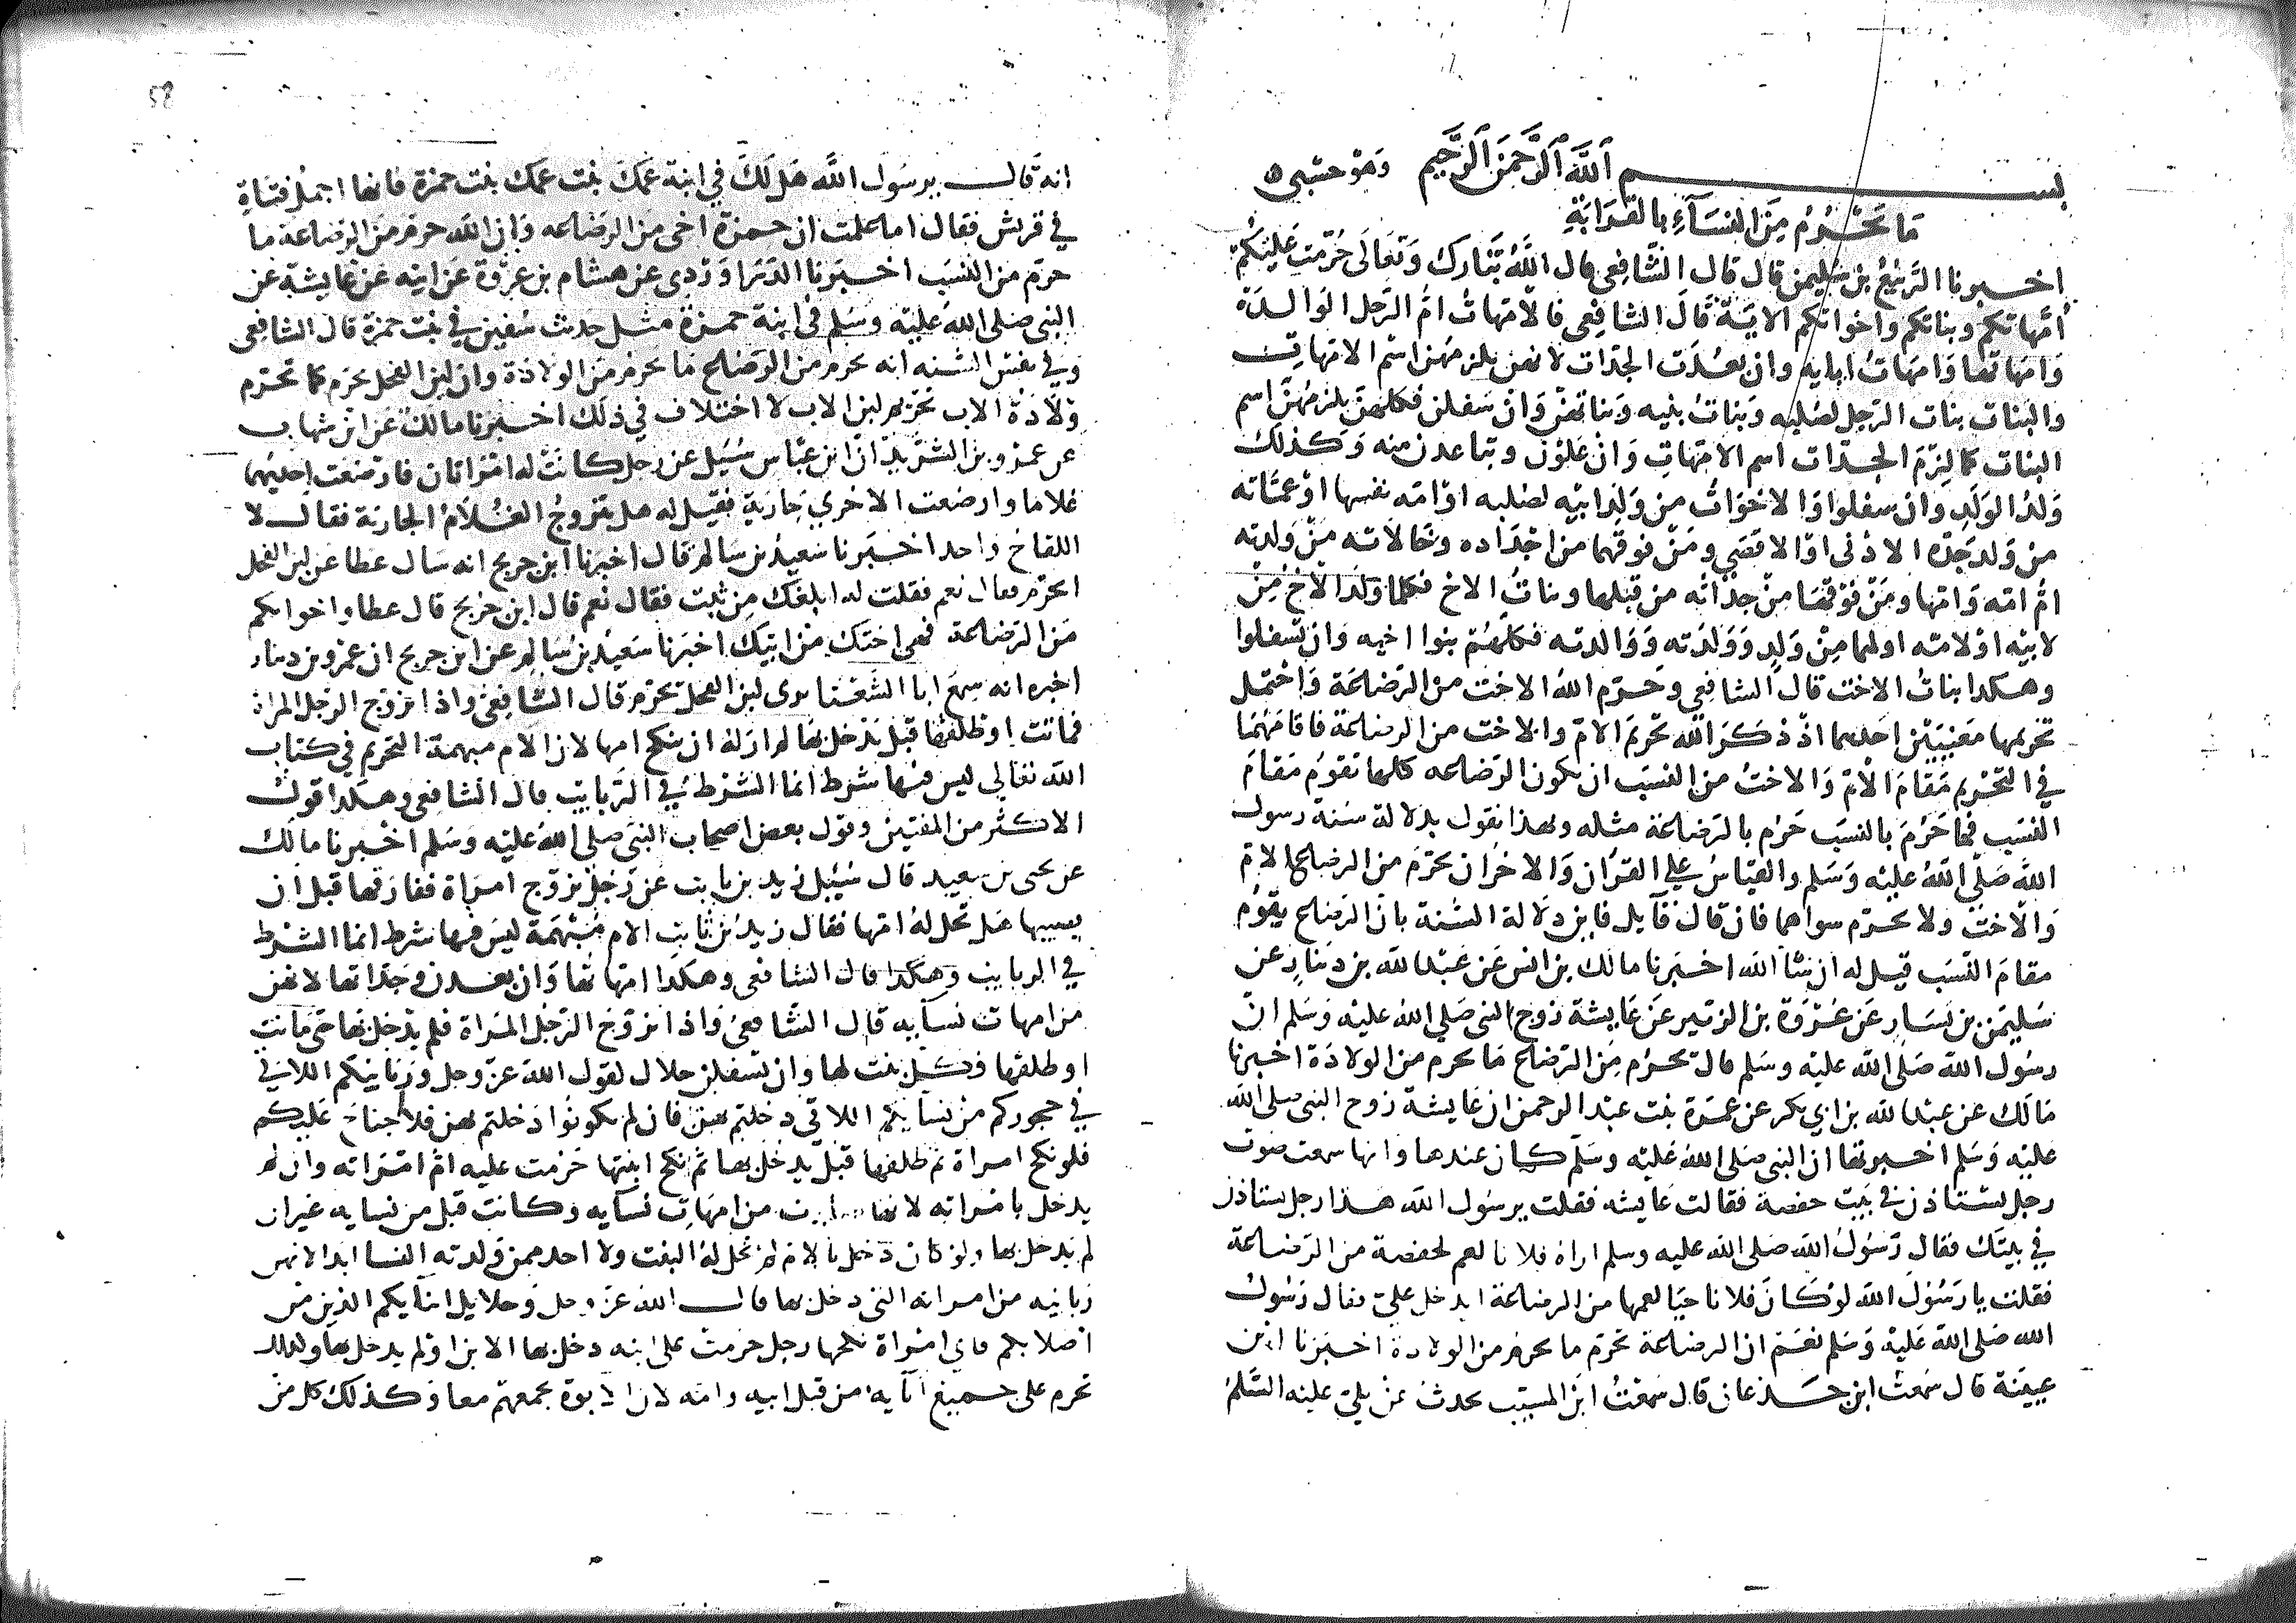 بسم الله الرحمن الرحيم وهو حسبي
ما يحرم من النساء بالقرابة
اخبرنا الربيع بن سليمن قال قال الشافعي قال الله تبارك وتعالى حرمت عليكم
امهاتكم وبناتكم واخواتكم الاية قال الشافعي فالامهات ام الرجل الوالدة
وامهاتها وامهات ابايه وان بعدت الجدات لانهن يلزمهن اسم الامهات
والبنات بنات الرجل لصلبه وبنات بنيه وبناتهن وان سفلن فكلهن يلزمهن اسم
البنات كما لزم الجدات اسم الامهات وان علون وتباعدن منه وكذلك
ولد الولد وان سفلوا والاخوات من ولد ابيه لصلبه او امه نفسها او عماته
من ولد جده الادنى او الاقصى ومن فوقهما من اجداده وخالاته من ولدته
ام امه وامها ومن فوقها من جداته من قبلها وبنات الاخ فكلما ولد الاخ من
لابيه او لامه او لهما من ولد وولدته ووالدته فكلهم بنوا اخيه وان تسفلوا
وهكدا بنات الاخت قال الشافعي وحرم الله الاخت من الرضاعة واحتمل
تحريمها معنيين احدهما اذ ذكر الله تحريم الام والاخت من الرضاعة فاقامهما
في التحريم مقام الام والاخت من النسب ان تكون الرضاعه كلها تقوم مقام
النسب فما حرم بالنسب حرم بالرضاعة مثله وبهذا نقول بدلالة سنة رسول
الله صلى الله عليه وسلم والقياس على القران والاخر ان يحرم من الرضاع الام
والاخت ولا يحرم سواهما فان قال قايل فاين دلالة السنة بان الرضاع يقوم
مقام النسب قيل له ان شا الله اخبرنا مالك بن انس عن عبد الله بن دينار عن
سليمن بن يسار عن عروة بن الزبير عن عايشة زوج النبي صلى الله عليه وسلم ان
رسول الله صلى الله عليه وسلم قال يحرم من الرضاع ما يحرم من الولادة اخبرنا
مالك عن عبد الله بن ابي بكر عن عمرة بنت عبد الرحمن ان عايشة زوج النبي صلى الله
عليه وسلم اخبرتها ان النبي صلى الله عليه وسلم كان عندها وانها سمعت صوت
رجل يستاذن في بيت حفصة فقالت عايشه فقلت يرسول الله هذا رجل يستاذن
في بيتك فقال رسول الله صلى الله عليه وسلم اراه فلانا لعم لحفصة من الرضاعة
فقلت يا رسول الله لو كان فلانا حيا لعمها من الرضاعة ايدخل علي فقال رسول
الله صلى الله عليه وسلم نعم ان الرضاعة تحرم ما يحرم من الولادة اخبرنا ابن
عيينة قال سمعت ابن جدعان قال سمعت ابن المسيب يحدث عن علي عليه السلم
انه قال يرسول الله هل لك في ابنة عمك بنت عمك بنت حمزة فانها اجمل فتاة
في قريش فقال اما علمت ان حمزة اخي من الرضاعه وان الله حرم من الرضاعة ما
حرم من النسب اخبرنا الدراوردي عن هشام بن عروة عن ابيه عن عايشة عن
النبي صلى الله عليه وسلم في ابنة حمزة مثل حديث سفين في بنت حمزة قال الشافعي
وفي نفس السنه انه يحرم من الرضاع ما يحرم من الولادة وان لبن الفحل يحرم كما تحرم
ولادة الاب تحريم لبن الاب لا اختلاف في ذلك اخبرنا مالك عن ابن شهاب
عن عمرو بن الشريد ان ابن عباس سئيل عن رجل كانت له امراتان فارضعت احديهما
غلاما وارضعت الاخري جارية فقيل له هل يتزوج الغلام الجارية فقال لا
اللقاح واحد اخبرنا سعيد بن سالم قال اخبرنا ابن جريج انه سال عطا عن لبن الفحل
ايحرم فقال نعم فقلت له ابلغك من ثبت فقال نعم قال ابن جريج قال عطا واخواتكم
من الرضاعة فهي اختك من ابيك اخبرنا سعيد بن سالم عن ابن جريج ان عمرو بن دينار
اخبره انه سمع ابا الشعثا يرى لبن الفحل يحرم قال الشافعي واذا تزوج الرجل المراة
فماتت او طلقها قبل يدخل بها لم ار له ان ينكح امها لان الام مبهمة التحريم في كتاب
الله تعالي ليس فيها شرط انما الشرط في الربايب قال الشافعي وهكدا قول
الاكثر من المفتين وقول بعض اصحاب النبي صلى الله عليه وسلم اخبرنا مالك
عن يحيى بن سعيد قال سئيل زيد بن ثابت عن رجل تزوج امراة ففارقها قبل ان
يصيبها هل تحل له امها فقال زيد بن ثابت الام مبهمة ليس فيها شرط انما الشرط
في الربايب وهكذا قال الشافعي وهكدا امهاتها وان بعدن وجداتها لانهن
من امهات نسايه قال الشافعي واذا تزوج الرجل المراة فلم يدخل بها حتى ماتت
او طلقها فكل بنت لها وان تسفلن حلال لقول الله عز وجل وربايبكم اللاتي
في حجوركم من نسايكم اللاتي دخلتم بهن فان لم تكونوا دخلتم بهن فلا جناح عليكم
فلو نكح امراة ثم طلقها قبل يدخل بها ثم نكح ابنتها حرمت عليه ام امراته وان لم
يدخل بامراته لانها صارت من امهات نسايه وكانت قبل من نسايه غير ان
لم يدخل بها ولو كان دخل بالام لم تحل له البنت ولا احد ممن ولدته النسا ابدا لانهن
ربايبه من امراته التي دخل بها قال الله عز وجل وحلايل ابنايكم الذين من
اصلابكم فاي امراة نكحها رجل حرمت على ابيه دخل بها الابن او لم يدخل بها وكذلك
تحرم على جميع ابايه من قبل ابيه وامه لان الابوة تجمعهم معا وكذلك كل من